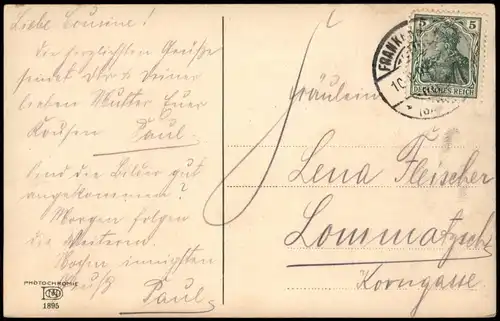 Liebe Cousine!
Die herzlichsten Grüße
sendet Dir & Deiner
lieben Mutter Euer
Paul.
Sind die Bilder gut
angekommen?
Morgen folgen
die Weiteren.
Nochm innigsten
Gruß Paul.
PHOTOCHROMIE
1895
FRANKF
10.
5 5
DEUTSCHES REICH
Fräulein
Lena Fleischer
Lommatzsch
Korngasse